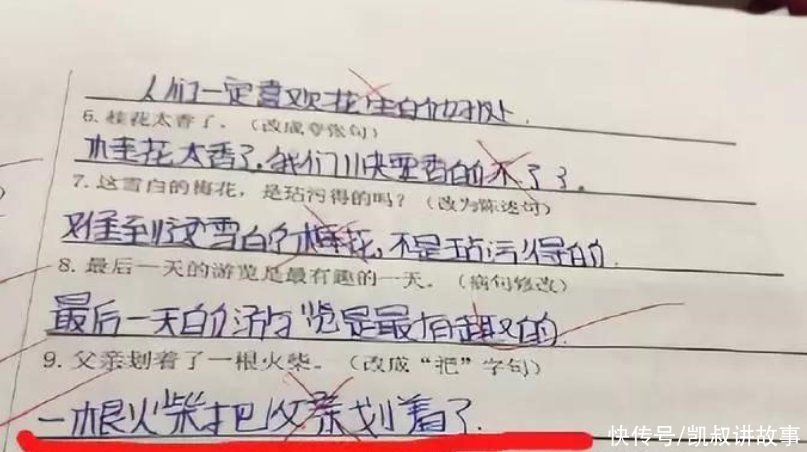 人们一定喜欢花生的好处.
6. 桂花太香了。（改成夸张句）
桂花太香了.我们快要香的不了了。
7. 这雪白的梅花，是玷污得的吗？（改为陈述句）
难道这雪白的梅花,不是玷污得的.
8. 最后一天的游览是最有趣的一天。（病句修改）
最后一天的游览是最有趣的.
9. 父亲划着了一根火柴。（改成“把”字句）
一根火柴把父亲划着了.
快传号/凯叔讲故事